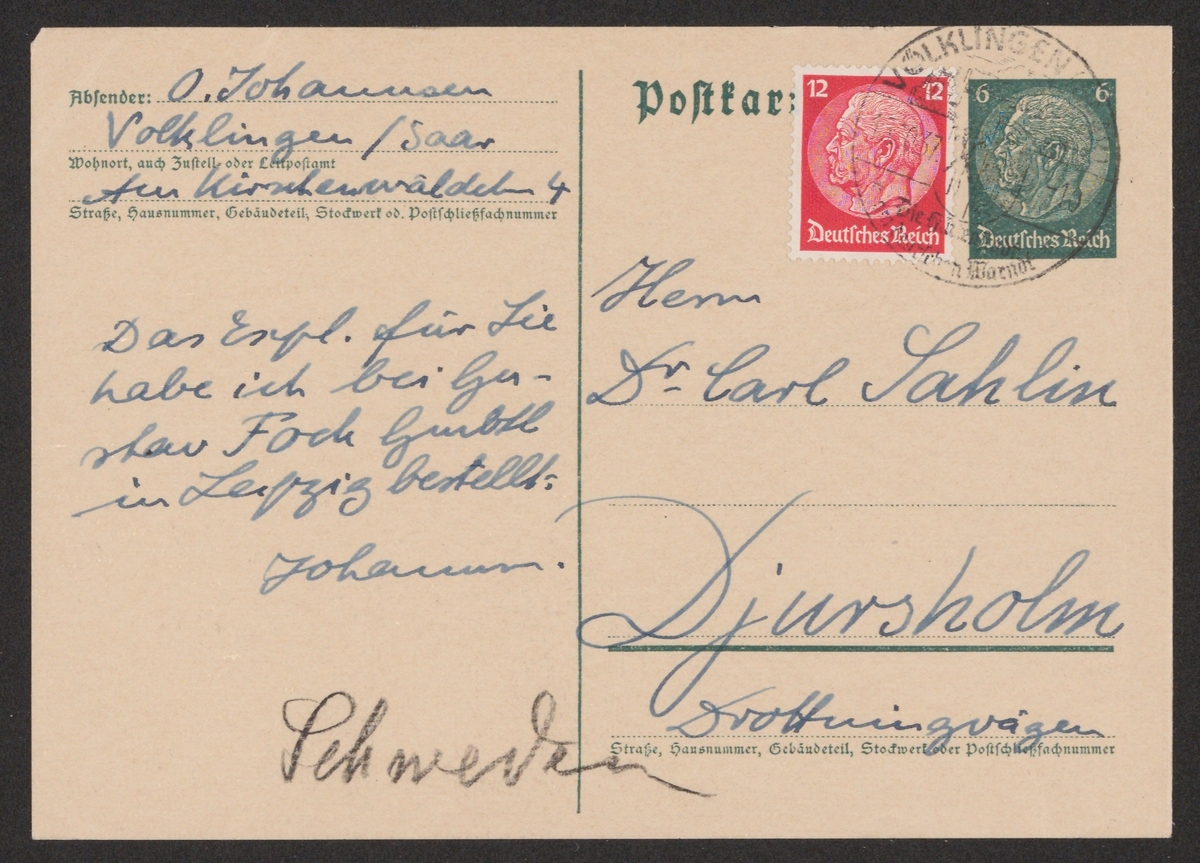 Absender: O. Johannsen
Völklingen / Saar
Wohnort, auch Zustell- oder Leitpostamt
Am Kirschenwäldchen 4
Straße, Hausnummer, Gebäudeteil, Stockwerk od. Postschließfachnummer
Das Expl. für Sie
habe ich bei Gu-
stav Fock GmbH
in Leipzig bestellt.
Johannsen.
Schweden
Postkar
12 12
Deutsches Reich
6 6
Deutsches Reich
VÖLKLINGEN
Warndt
Herrn
Dr. Carl Sahlin
Djursholm
Drottningvägen
Straße, Hausnummer, Gebäudeteil, Stockwerk oder Postschließfachnummer